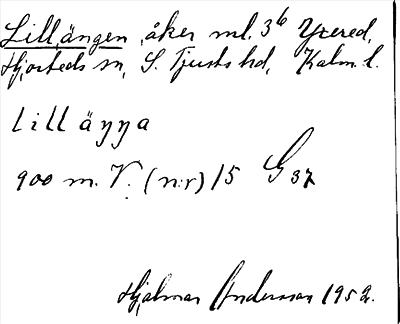 Lillängen, åker ml. 3⁶ Yxered,
Hjorteds sn, S. Tjusts hd, Kalm. l.
lilläŋŋa
900 m. V. (nr) 15 G 37
Hjalmar Andersson 1952.